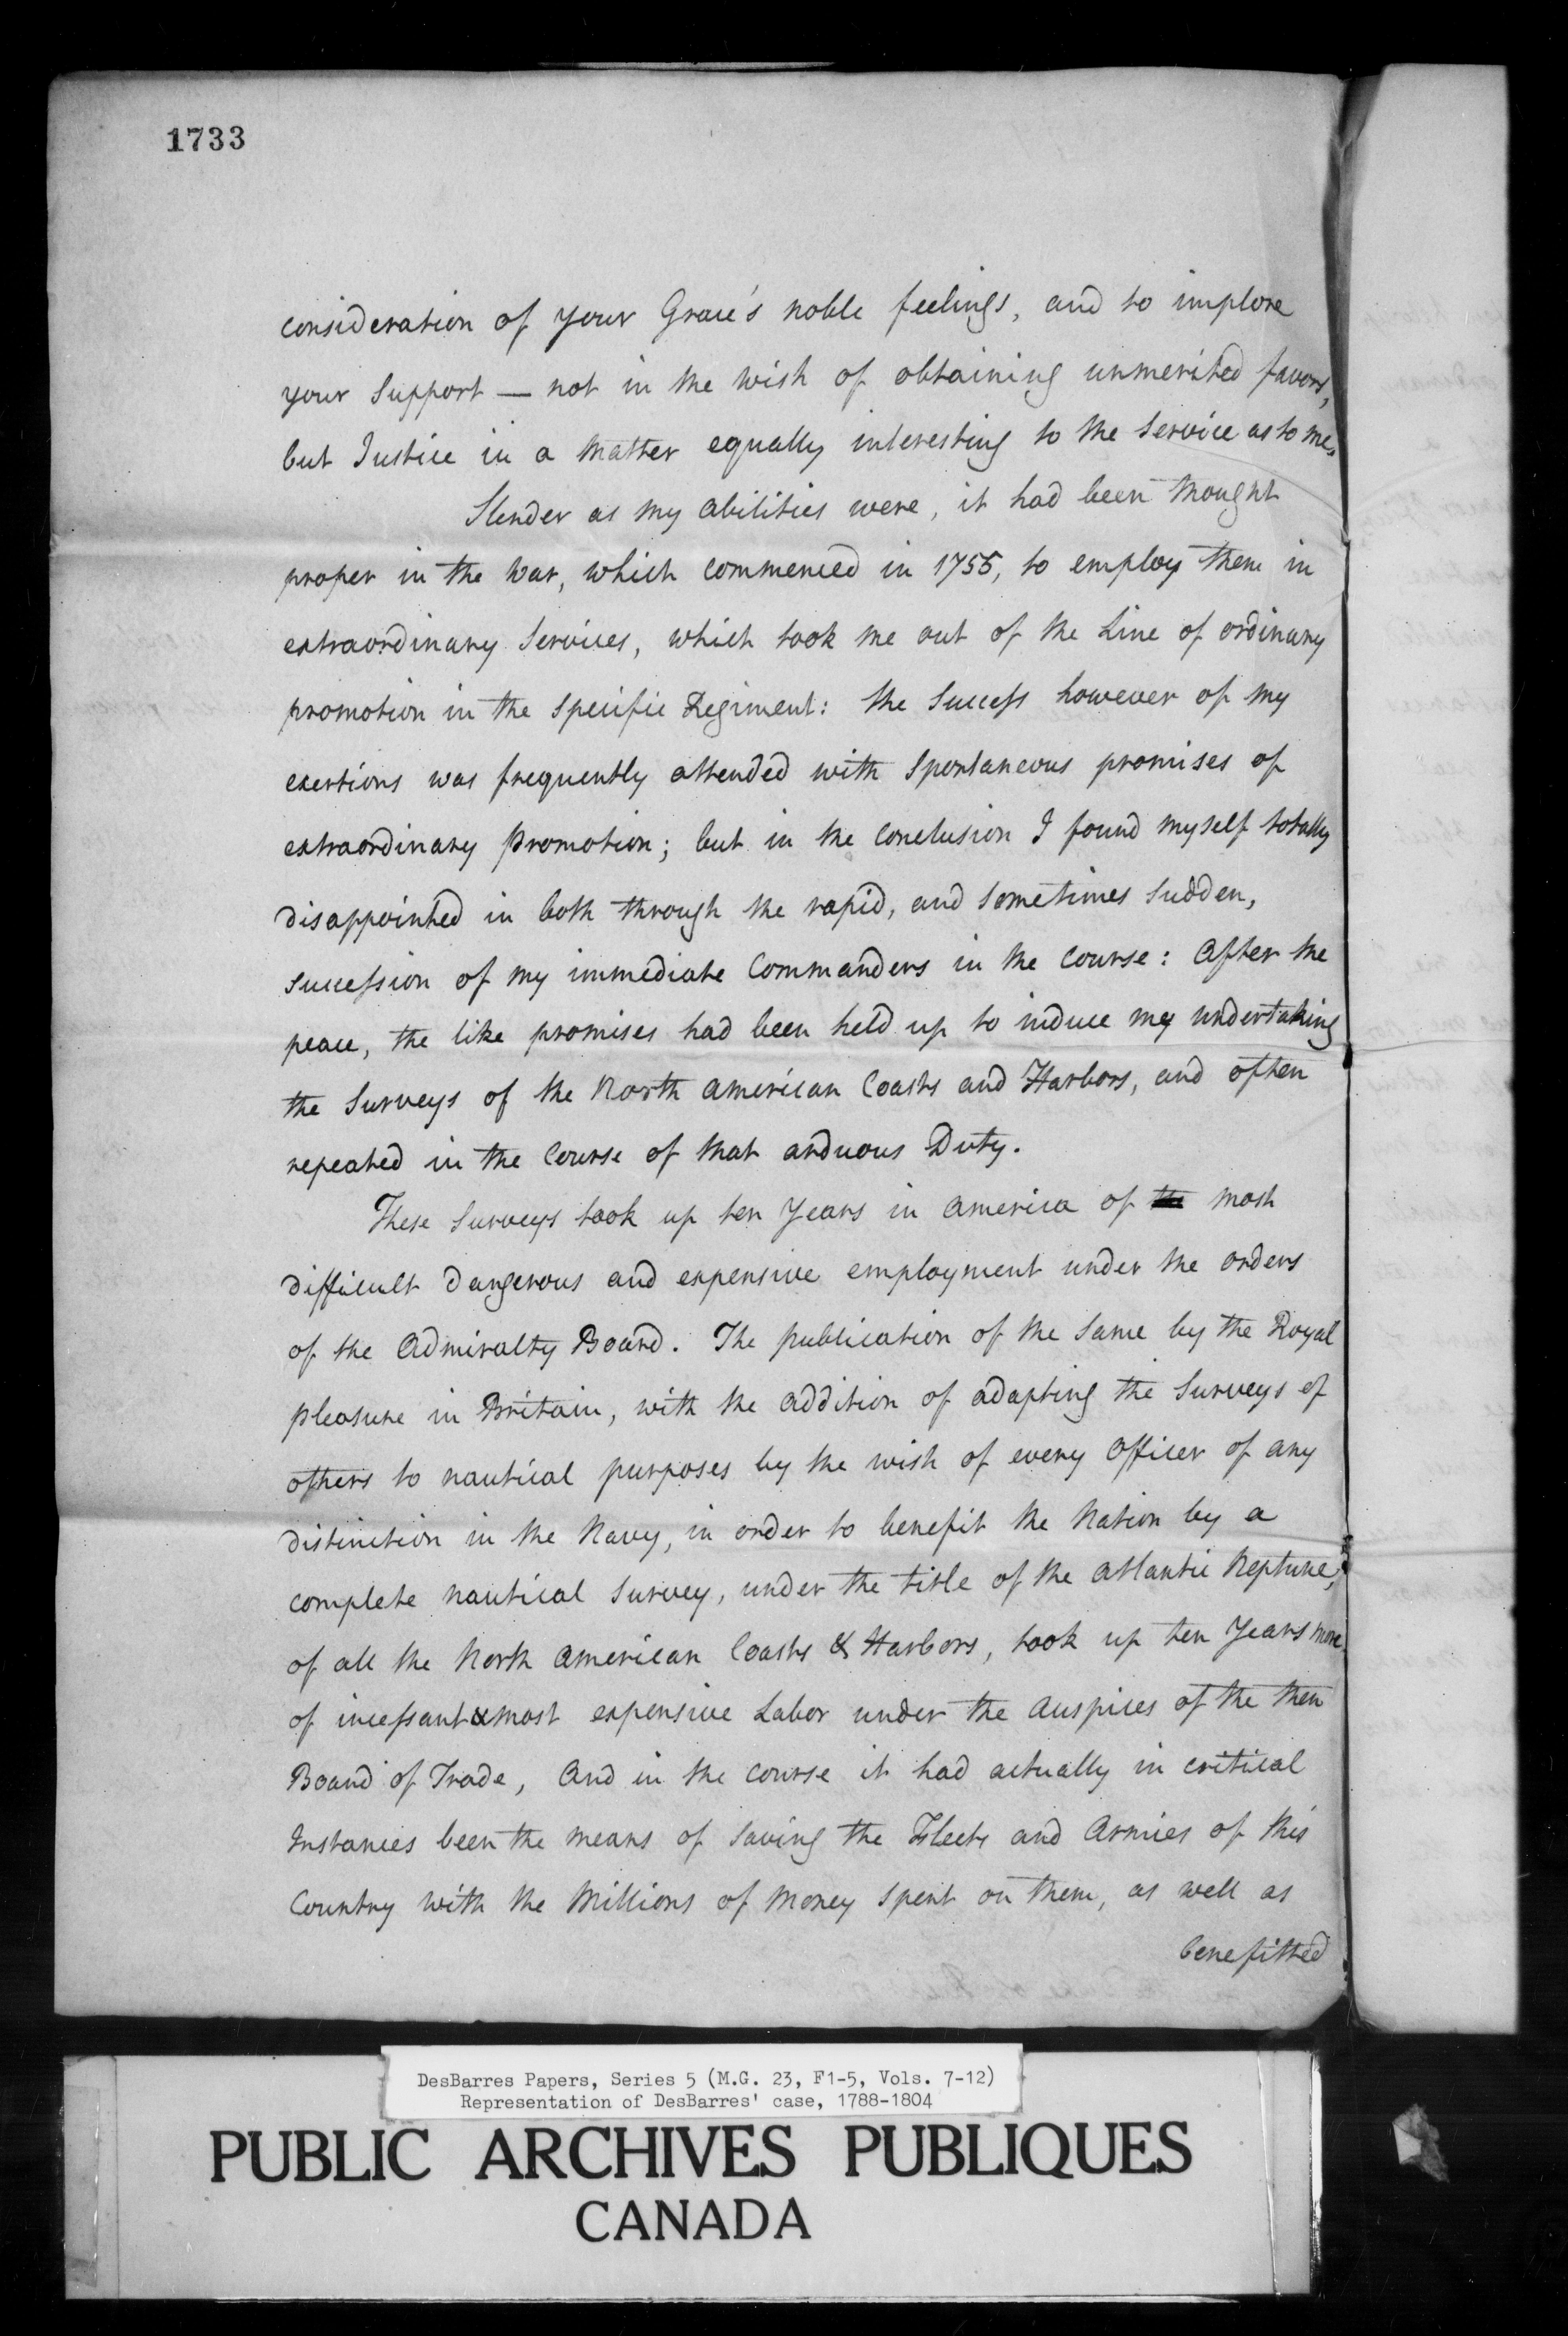 1733
consideration of your Grace's noble feelings, and to implore
your Support — not in the wish of obtaining unmerited favors,
but Justice in a matter equally interesting to the Service as to me.
Slender as my abilities were, it had been thought
proper in the War, which commenced in 1755, to employ them in
extraordinary Services, which took me out of the Line of ordinary
promotion in the specific Regiment: the Success however of my
exertions was frequently attended with Spontaneous promises of
extraordinary promotion; but in the Conclusion I found myself totally
disappointed in both through the rapid, and sometimes sudden,
succession of my immediate Commanders in the Course: After the
peace, the like promises had been held up to induce my undertaking
the Surveys of the North American Coasts and Harbors, and often
repeated in the Course of that arduous Duty.
These Surveys took up ten Years in America of the most
difficult dangerous and expensive employment under the orders
of the Admiralty Board. The publication of the Same by the Royal
pleasure in Britain, with the addition of adapting the Surveys of
others to nautical purposes by the wish of every Officer of any
distinction in the Navy, in order to benefit the Nation by a
complete nautical Survey, under the title of the Atlantic Neptune,
of all the North American Coasts & Harbors, took up ten Years more
of incessant & most expensive Labor under the Auspices of the then
Board of Trade, And in the course it had actually in critical
Instances been the means of saving the Fleets and Armies of this
Country with the Millions of Money spent on them, as well as
benefitted
DesBarres Papers, Series 5 (M.G. 23, F1-5, Vols. 7-12)
Representation of DesBarres' case, 1788-1804
PUBLIC ARCHIVES PUBLIQUES
CANADA